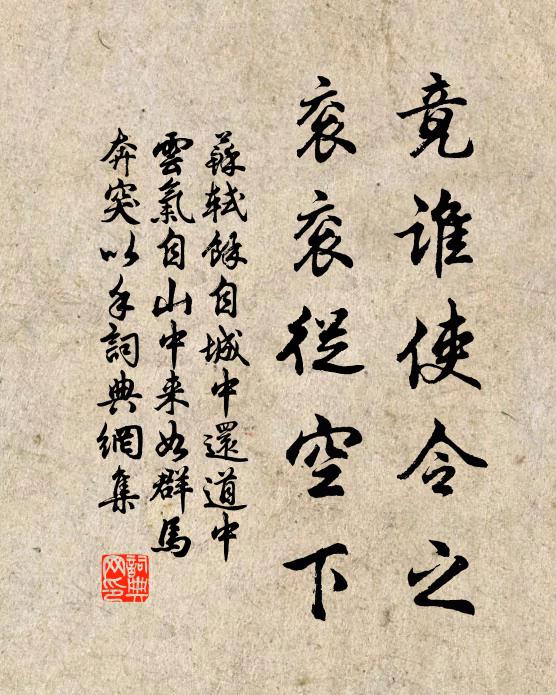 竟誰使令之
袞袞從空下
蘇軾餘自城中還道中
雲氣自山中来如群馬
奔突以手詞典網集
詞典
网印